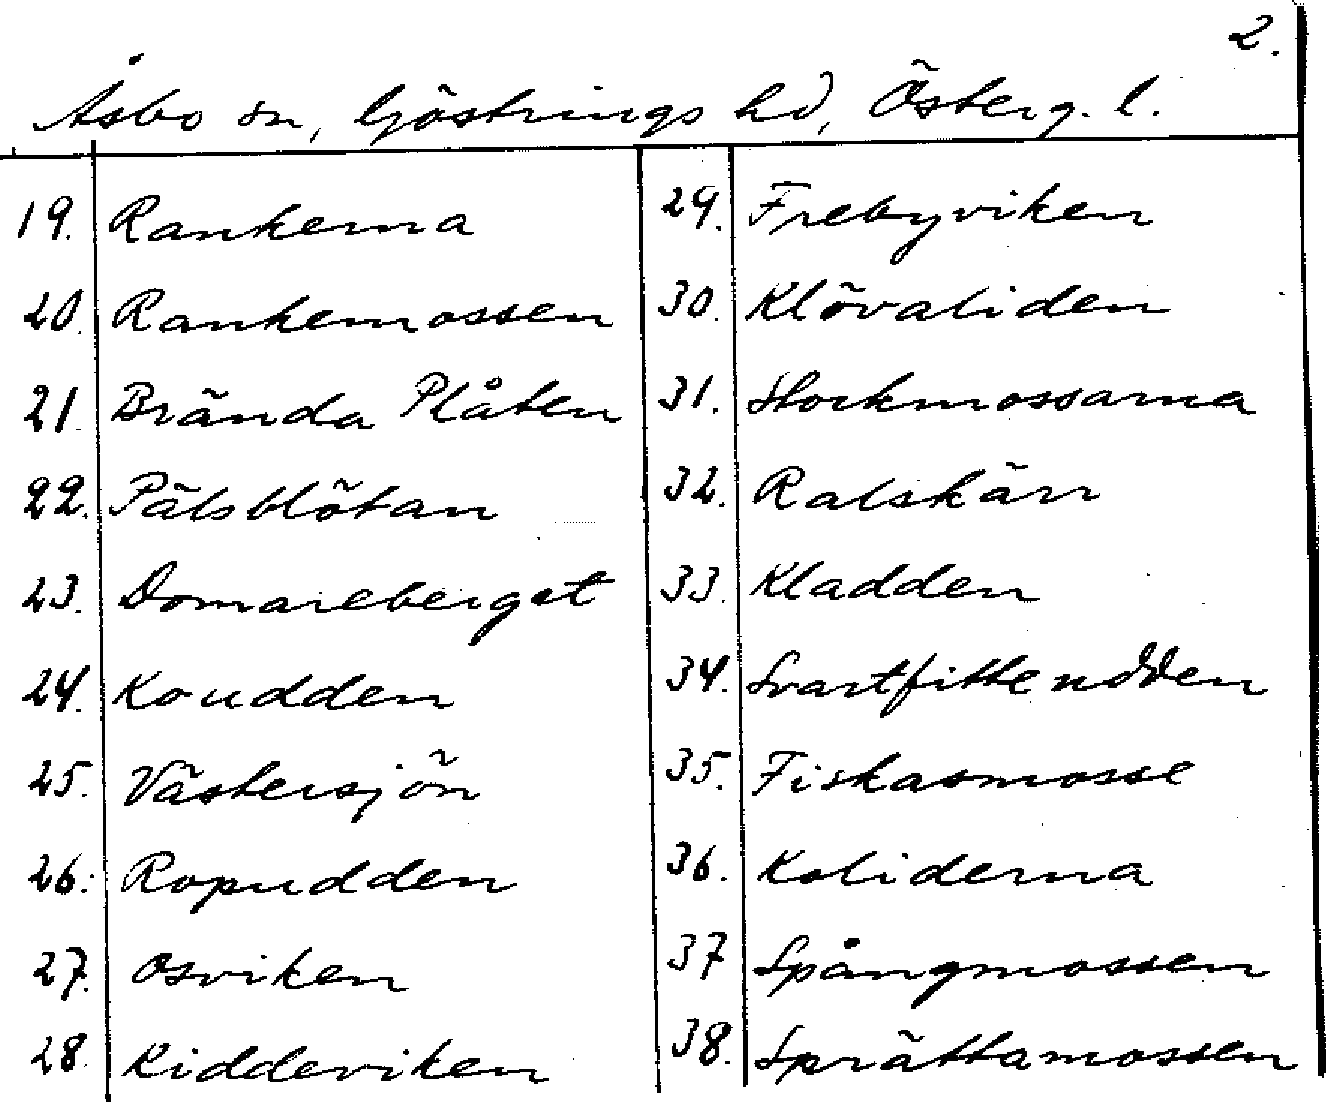 2.
Åsbo sn, Göstrings hd, Österg. l.
19. Rankerna
20. Rankemossen
21. Brända Plåten
22. Pälsblötan
23. Domareberget
24. Koudden
25. Västersjön
26. Ropudden
27. Osviken
28. Kiddeviken
29. Frebyviken
30. Klövaliden
31. Stockmossarna
32. Ralskärr
33. Kladden
34. Svartfitteudden
35. Fiskasmosse
36. Koliderna
37 Spångmossen
38. Sprättamossen